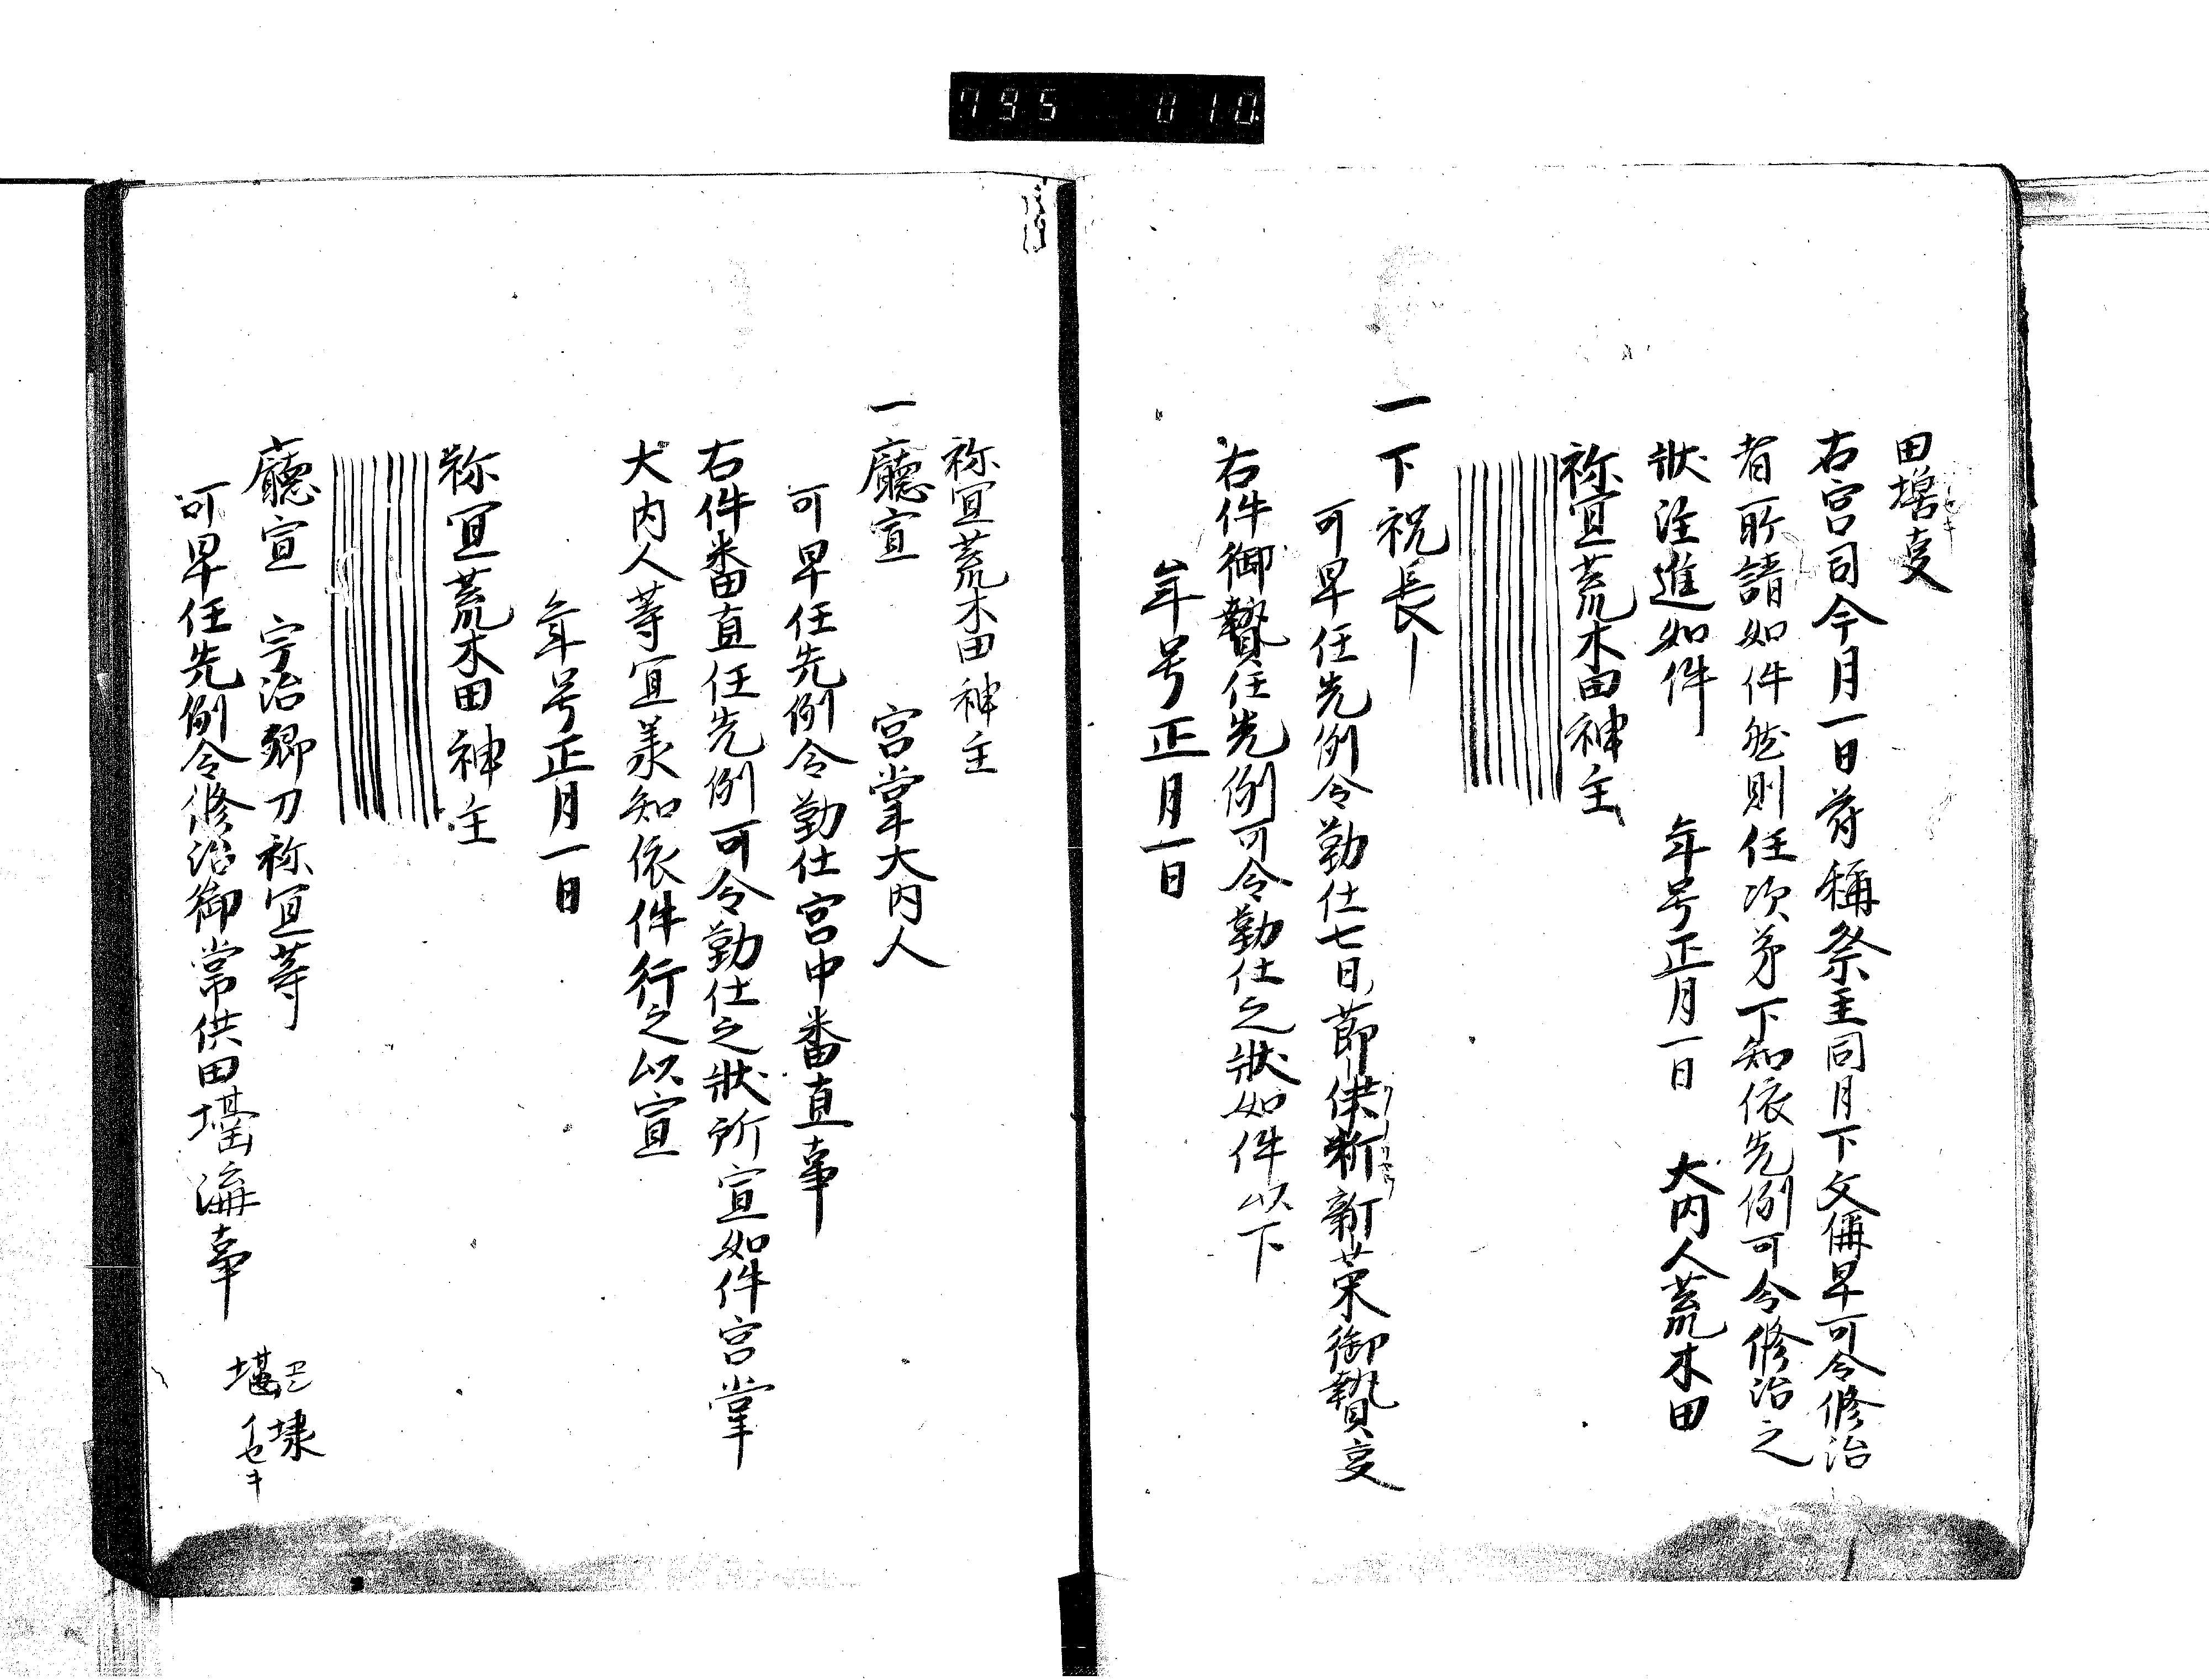 795 010
田堰㕝
右宮司今月一日符稱祭主同月下文偁早可令修治
者所請如件然則任次第下知依先例可令修治之
狀注進如件 年号正月一日 大内人荒木田
祢宜荒木田神主
一下祝長
可早任先例令勤仕七日節供新菜御贄㕝
右件御贄任先例可令勤仕之狀如件以下
年号正月一日
祢宜荒木田神主
一廳宣 宮掌大内人
可早任先例令勤仕宮中番直事
右件番直任先例可令勤仕之狀所宣如件宮掌
大内人等宜承知依件行之以宣
年号正月一日
祢宜荒木田神主
廳宣 宇治郷刀祢宜等
可早任先例令修治御常供田堰溝事
堰 埭
イセキ